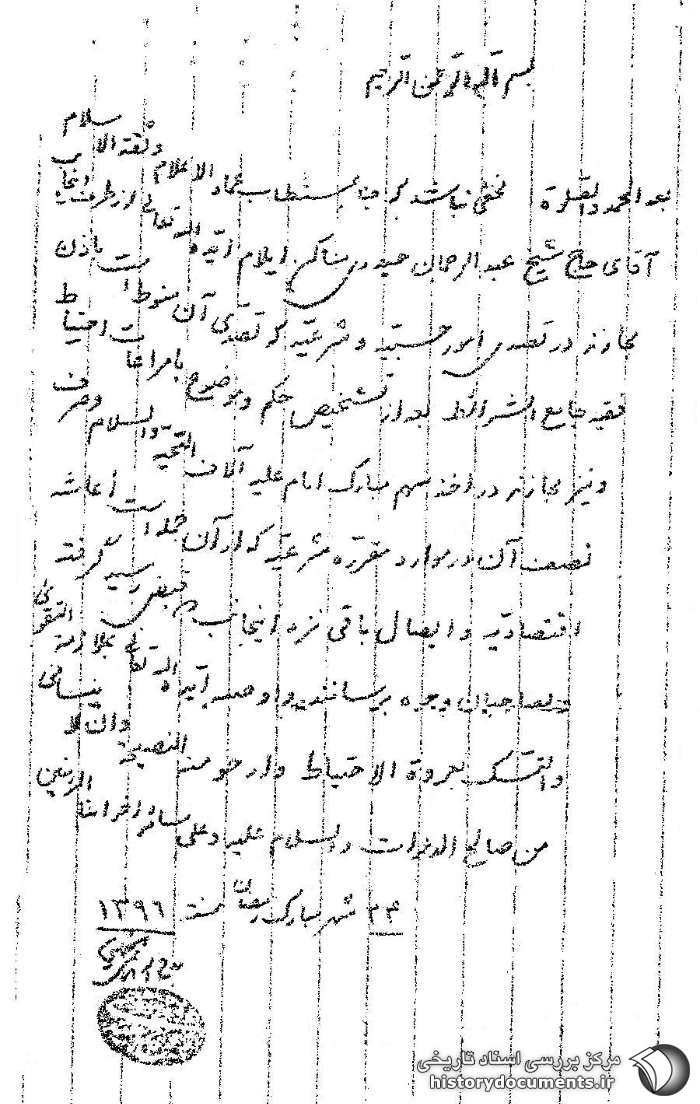 بسم الله الرحمن الرحیم
بعد الحمد والصلوة مخفی نباشد که جناب مستطاب عماد الاعلام وثقة الاسلام
آقای حاج شیخ عبدالرحمان حیدری ساکن ایلام ایده الله تعالی از طرف اینجانب
مجازند در تصدی امور حسبیه و شرعیه که تصدی آن منوط است باذن
فقیه جامع الشرائط بعد از تشخیص حکم و موضوع با مراعات احتیاط
و نیز مجازند در اخذ سهم مبارک امام علیه آلاف التحیة والسلام و صرف
نصف آن در موارد مقرره شرعیه که از آن جمله است اعاشه
اقتصادیه و ایصال باقی نزد اینجانب و قبض رسید گرفته
بصاحبان وجوه برسانند و اوصیه ایده الله تعالی بملازمة التقوی
والتمسک بعروة الاحتیاط وارجو منه النصیحة وان لا ینسانی
من صالح الدعوات والسلام علیه وعلی سائر اخواننا المؤمنین
۲۴ شهر مبارک رمضان سنه ۱۳۹۶
مرکز بررسی اسناد تاریخی
historydocuments.ir